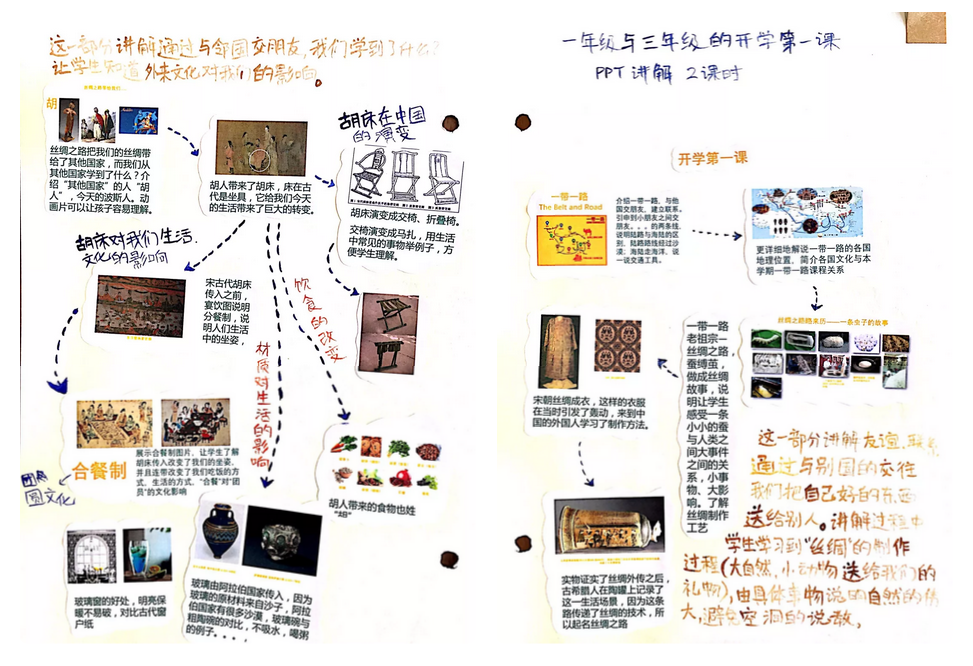 这一部分讲解通过与邻国交朋友,我们学到了什么?
让学生知道外来文化对我们的影响。
胡
丝绸之路把我们的丝绸带
给了其他国家,而我们从
其他国家学到了什么?介
绍“其他国家”的人“胡
人”,今天的波斯人。动
画片可以让孩子容易理解。
胡人带来了胡床,床在古
代是坐具,它给我们今天
的生活带来了巨大的转变。
胡床在中国
的演变
胡床演变成交椅、折叠椅。
交椅演变成马扎,用生活
中常见的事物举例子,方
便学生理解。
胡床对我们生活.
文化的影响
宋古代胡床
传入之前,
宴饮图说明
分餐制,说
明人们生活
中的坐姿,
饮食的改变
材质对生活的影响
合餐制
展示合餐制图片,让学生了解
胡床传入改变了我们的坐姿,
并且连带改变了我们吃饭的方
式、生活的方式。“合餐”对“团
员”的文化影响
团员
圆文化
胡人带来的食物也姓
“胡”
玻璃窗的好处,明亮保
暖不易破,对比古代窗
户纸
玻璃由阿拉伯国家传入,因为
玻璃的原材料来自沙子,阿拉
伯国家有很多沙漠,玻璃碗与
粗陶碗的对比,不吸水,喝粥
的例子。。。。
一年级与三年级的开学第一课
PPT讲解 2课时
开学第一课
一带一路
The Belt and Road
介绍一带一路、与他
国交朋友,建立联系。
引申到小朋友之间交
朋友。。。的两条线,
说明陆路与海陆的区
别,陆路路线经过沙
漠,海陆走海洋,说
一说交通工具。
更详细地解说一带一路的各国
地理位置,简介各国文化与本
学期一带一路课程关系
丝绸之路路来历——一条虫子的故事
一带一路
老祖宗—
丝绸之路,
蚕缚茧,
做成丝绸
故事,说
明让学生
感受一条
小小的蚕
与人类之
间大事件
之间的关
系,小事
物、大影
响。了解
丝绸制作
工艺
宋朝丝绸成衣,这样的衣服
在当时引发了轰动,来到中
国的外国人学习了制作方法。
实物证实了丝绸外传之后,
古希腊人在陶罐上记录了
这一生活场景,因为这条
路传递了丝绸的技术,所
以起名丝绸之路
这一部分讲解友谊,联系
通过与别国的交往
我们把自己好的东西
送给别人。讲解过程中
学生学习到“丝绸”的制作
过程(大自然,小动物送给我们的
礼物),由具体事物说明自然的伟
大,避免空洞的说教。